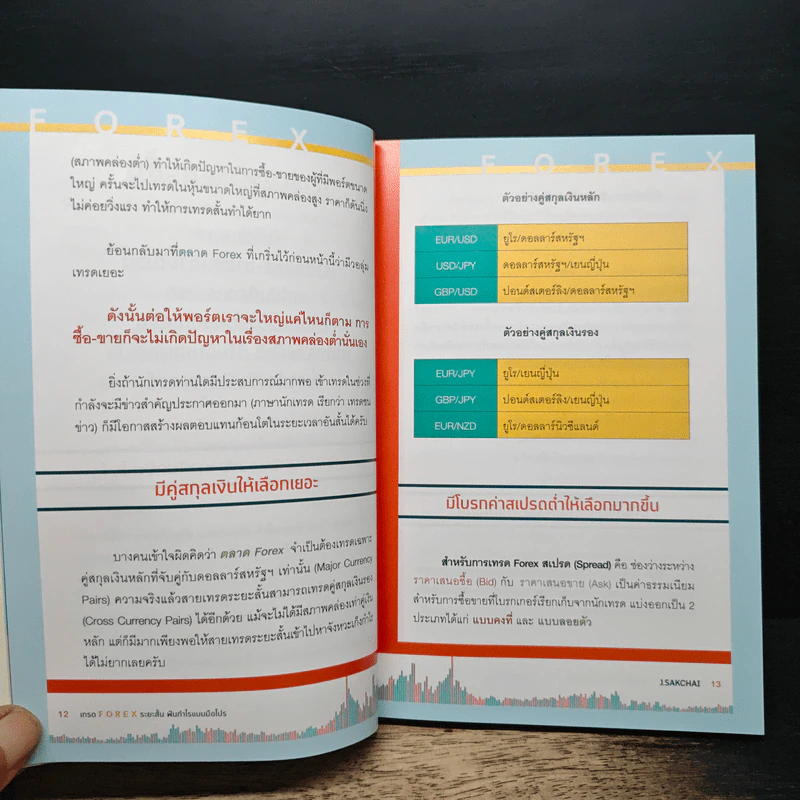 FOREX
(สภาพคล่องต่ำ) ทำให้เกิดปัญหาในการซื้อ-ขายของผู้ที่มีพอร์ตขนาด
ใหญ่ ครั้นจะไปเทรดในหุ้นขนาดใหญ่ที่สภาพคล่องสูง ราคาก็ดันนิ่ง
ไม่ค่อยวิ่งแรง ทำให้การเทรดสั้นทำได้ยาก
ย้อนกลับมาที่ตลาด Forex ที่เกริ่นไว้ก่อนหน้านี้ว่ามีวอลุ่ม
เทรดเยอะ
ดังนั้นต่อให้พอร์ตเราจะใหญ่แค่ไหนก็ตาม การ
ซื้อ-ขายก็จะไม่เกิดปัญหาในเรื่องสภาพคล่องต่ำนั่นเอง
ยิ่งถ้านักเทรดท่านใดมีประสบการณ์มากพอ เข้าเทรดในช่วงที่
กำลังจะมีข่าวสำคัญประกาศออกมา (ภาษานักเทรด เรียกว่า เทรดชน
ข่าว) ก็มีโอกาสสร้างผลตอบแทนก้อนโตในระยะเวลาอันสั้นได้ครับ
มีคู่สกุลเงินให้เลือกเยอะ
บางคนเข้าใจผิดคิดว่า ตลาด Forex จำเป็นต้องเทรดเฉพาะ
คู่สกุลเงินหลักที่จับคู่กับดอลลาร์สหรัฐฯ เท่านั้น (Major Currency
Pairs) ความจริงแล้วสายเทรดระยะสั้นสามารถเทรดคู่สกุลเงินรอง
(Cross Currency Pairs) ได้อีกด้วย แม้จะไม่ได้มีสภาพคล่องเท่าคู่เงิน
หลัก แต่ก็มีมากเพียงพอให้สายเทรดระยะสั้นเข้าไปหาจังหวะเก็งกำไร
ได้ไม่ยากเลยครับ
12 เทรด FOREX ระยะสั้น ฟันกำไรแบบมือโปร
FOREX
ตัวอย่างคู่สกุลเงินหลัก
EUR/USD ยูโร/ดอลลาร์สหรัฐฯ
USD/JPY ดอลลาร์สหรัฐฯ/เยนญี่ปุ่น
GBP/USD ปอนด์สเตอร์ลิง/ดอลลาร์สหรัฐฯ
ตัวอย่างคู่สกุลเงินรอง
EUR/JPY ยูโร/เยนญี่ปุ่น
GBP/JPY ปอนด์สเตอร์ลิง/เยนญี่ปุ่น
EUR/NZD ยูโร/ดอลลาร์นิวซีแลนด์
มีโบรกค่าสเปรดต่ำให้เลือกมากขึ้น
สำหรับการเทรด Forex สเปรด (Spread) คือ ช่องว่างระหว่าง
ราคาเสนอซื้อ (Bid) กับ ราคาเสนอขาย (Ask) เป็นค่าธรรมเนียม
สำหรับการซื้อขายที่โบรกเกอร์เรียกเก็บจากนักเทรด แบ่งออกเป็น 2
ประเภทได้แก่ แบบคงที่ และ แบบลอยตัว
J.SAKCHAI 13